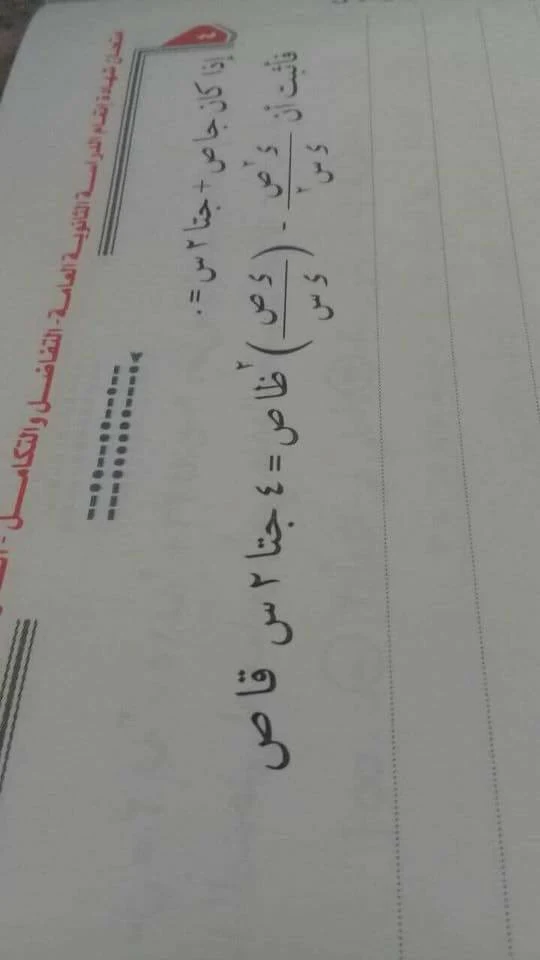 امتحان شهادة إتمام الدراسة الثانوية العامة - التفاضل والتكامل -
٤
إذا كان جا ص + جتا ٢ س = ٠
فأثبت أن \frac{ء^٢ ص}{ء س^٢} - (\frac{ء ص}{ء س})^٢ ظا ص = ٤ جتا ٢ س قا ص